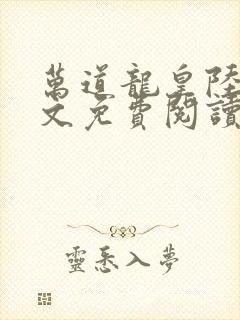 萬道龍皇陸
文免費閱讀
靈悉入夢